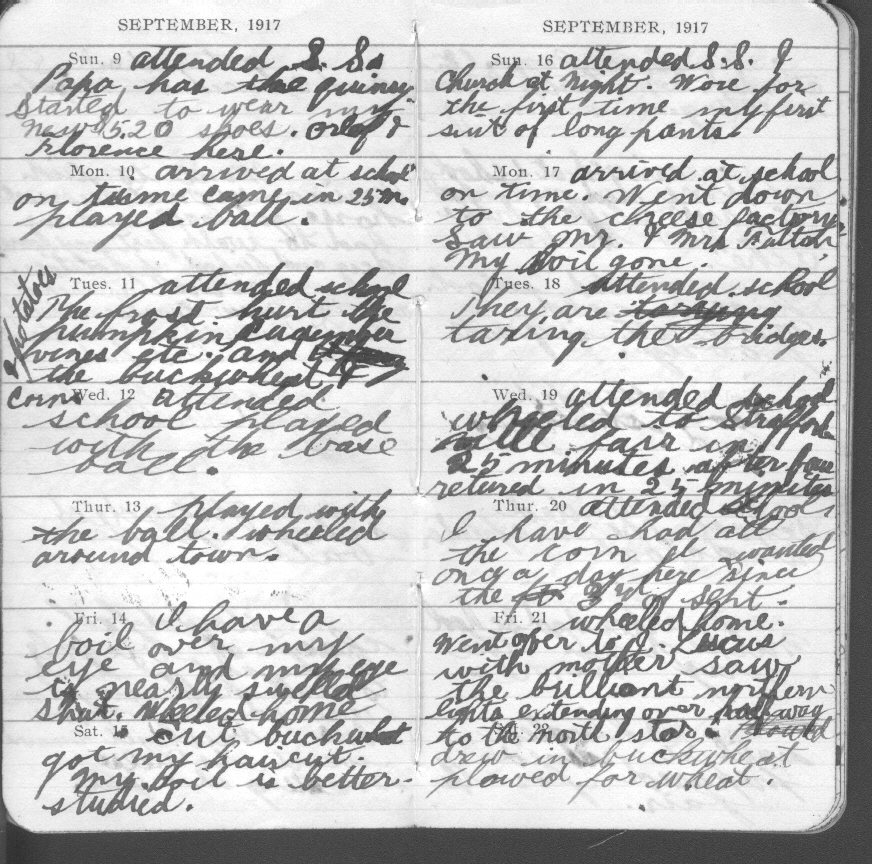 SEPTEMBER, 1917
Sun. 9 attended S. S.
Papa has the quinsy
Started to wear my
new 5.20 shoes. &
Florence here.
Mon. 10 arrived at school
on time came in 25 m.
played ball.
Tues. 11 attended school
The frost hurt the
pumpkin cucumber
vines etc. and
the buckwheat &
corn & potatoes
Wed. 12 attended
school played
with the base
ball.
Thur. 13 played with
the ball. wheeled
around town.
Fri. 14 I have a
boil over my
eye and my eye
is nearly swelled
shut. Wheeled home
Sat. 15 cut buckwht
got my haircut.
My boil is better.
studied.
SEPTEMBER, 1917
Sun. 16 attended S.S. &
Church at night. Wore for
the first time my first
suit of long pants.
Mon. 17 arrived at school
on time. Went down
to the cheese factory
Saw Mr. & Mrs
My boil gone.
Tues. 18 attended school
They are
taxing the bridges.
Wed. 19 attended school
wheeled to
fair in
25 minutes after four
retured in 25 minutes
Thur. 20 attended school
I have had all
the corn I wanted
once a day here since
the 3 of sept.
Fri. 21 wheeled home.
Went over to
with mother saw
the brilliant northern
lights extending over half way
to the north star.
Sat. 22
drew in buckwheat
plowed for wheat.